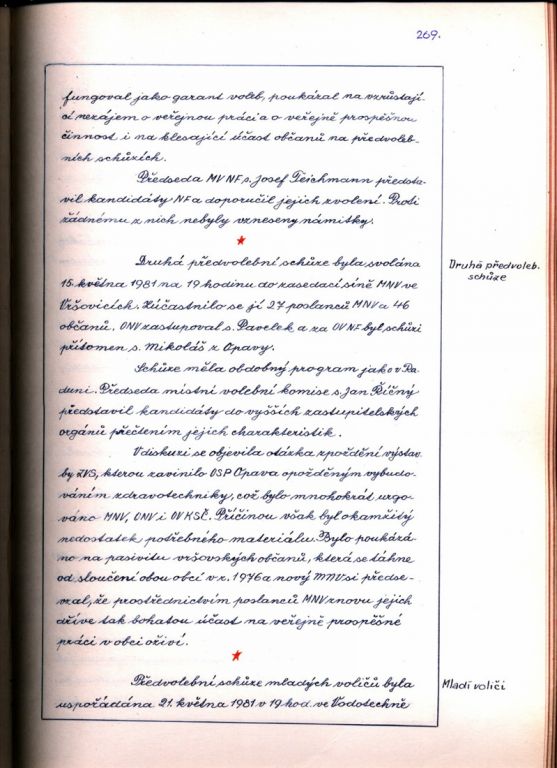 269.
fungoval jako garant voleb, poukázal na vzrůstají-
cí nezájem o veřejnou práci a o veřejně prospěšnou
činnost i na klesající účast občanů na předvoleb-
ních schůzích.
Předseda MV NF s. Josef Teichmann předsta-
vil kandidáty NF a doporučil jejich zvolení. Proti
žádnému z nich nebyly vzneseny námitky.
Druhá předvolební schůze byla svolána
Druhá předvoleb.
schůze
15. května 1981 na 19 hodinu do zasedací síně MNV ve
Vršovicích. Zúčastnilo se jí 27 poslanců MNV a 46
občanů. ONV zastupoval s. Pavelek a za OV NF byl schůzi
přítomen s. Mikoláš z Opavy.
Schůze měla obdobný program jako v Ra-
duni. Předseda místní volební komise s. Jan Říčný
představil kandidáty do vyšších zastupitelských
orgánů přečtením jejich charakteristik.
V diskuzi se objevila otázka zpoždění výstav-
by ZVS, kterou zavinilo OSP Opava opožděným vybudo-
váním zdravotechniky, což bylo mnohokrát urgo-
váno MNV, ONV i OV KSČ. Příčinou však byl okamžitý
nedostatek potřebného materiálu. Bylo poukázá-
no na pasivitu vršovských občanů, která se táhne
od sloučení obou obcí v r. 1976 a nový MNV si předse-
vzal, že prostřednictvím poslanců MNV znovu jejich
dříve tak bohatou účast na veřejně prospěšné
práci v obci oživí.
Předvolební schůze mladých voličů byla
Mladí voliči
uspořádána 21. května 1981 v 19 hod. ve Vodotechně